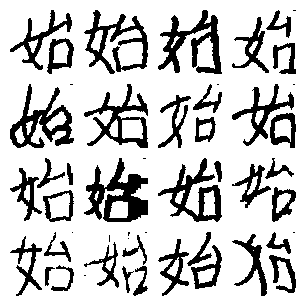 始始始始
始始始始
始始始始
始始始始